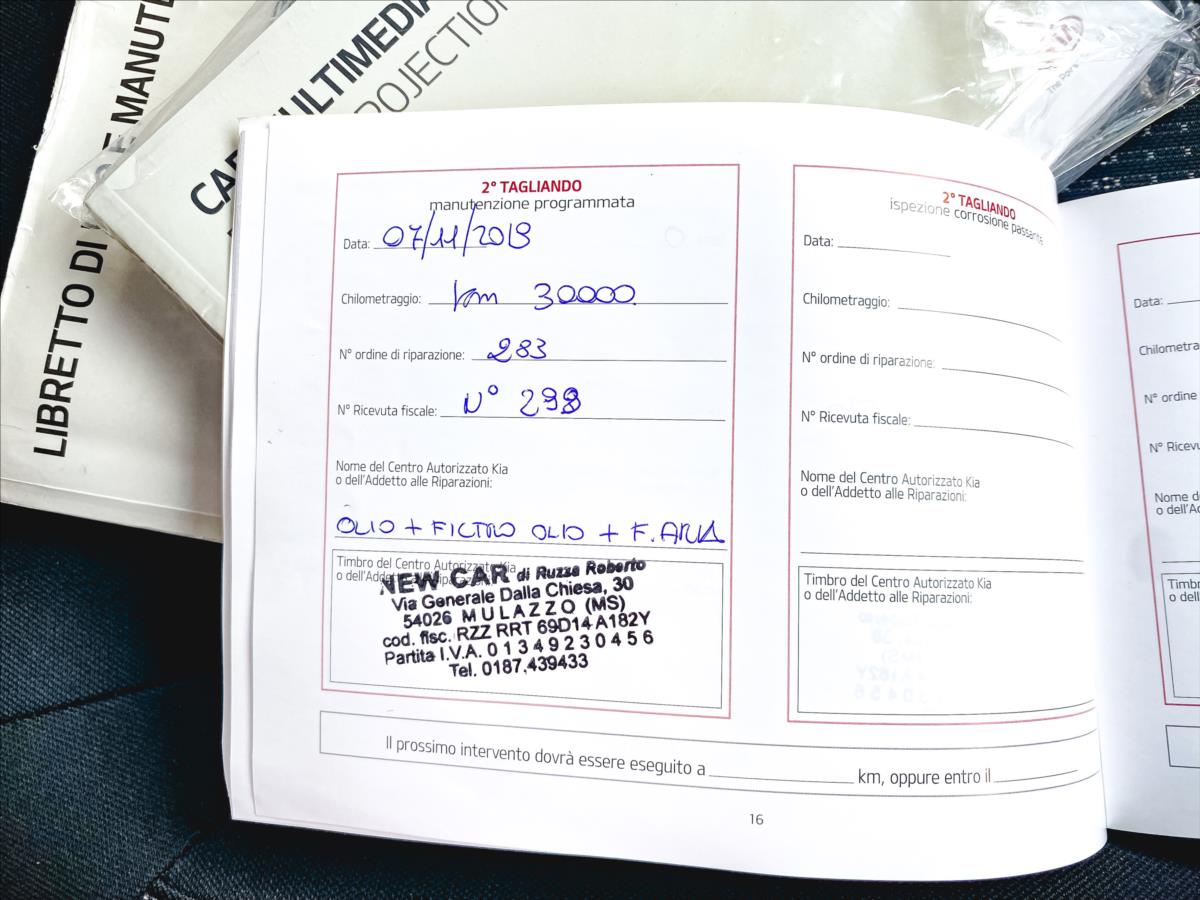 LIBRETTO DI
MANUTE
CAR
ULTIMEDIA
PROJECTION
KIA
The Power
2° TAGLIANDO
manutenzione programmata
Data: 07/11/2019
Chilometraggio: km 30000
N° ordine di riparazione: 283
N° Ricevuta fiscale: N° 298
Nome del Centro Autorizzato Kia
o dell'Addetto alle Riparazioni:
OLIO + FILTRO OLIO + F. ARIA
Timbro del Centro Autorizzato Kia
o dell'Addetto alle Riparazioni:
NEW CAR di Ruzze Roberto
Via Generale Dalla Chiesa, 30
54026 MULAZZO (MS)
cod. fisc. RZZ RRT 69D14 A182Y
Partita I.V.A. 0 1 3 4 9 2 3 0 4 5 6
Tel. 0187.439433
2° TAGLIANDO
ispezione corrosione passante
Data:
Chilometraggio:
N° ordine di riparazione:
N° Ricevuta fiscale:
Nome del Centro Autorizzato Kia
o dell'Addetto alle Riparazioni:
Timbro del Centro Autorizzato Kia
o dell'Addetto alle Riparazioni:
Il prossimo intervento dovrà essere eseguito a km, oppure entro il
16
Data:
Chilometra
N° ordine
N° Ricevu
Nome d
o dell'A
Timb
o dell